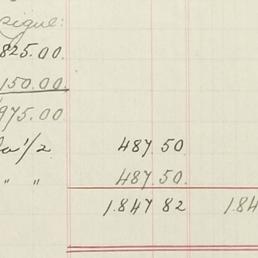 825.00
150.00
975.00
1/2 487 50
" " 487 50.
1.847 82 1.84